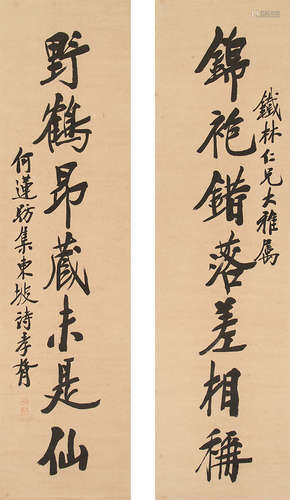 錦袍錯落差相稱
鐵林仁兄大雅屬
野鶴昂藏未是仙
何蓮舫集東坡詩孝胥